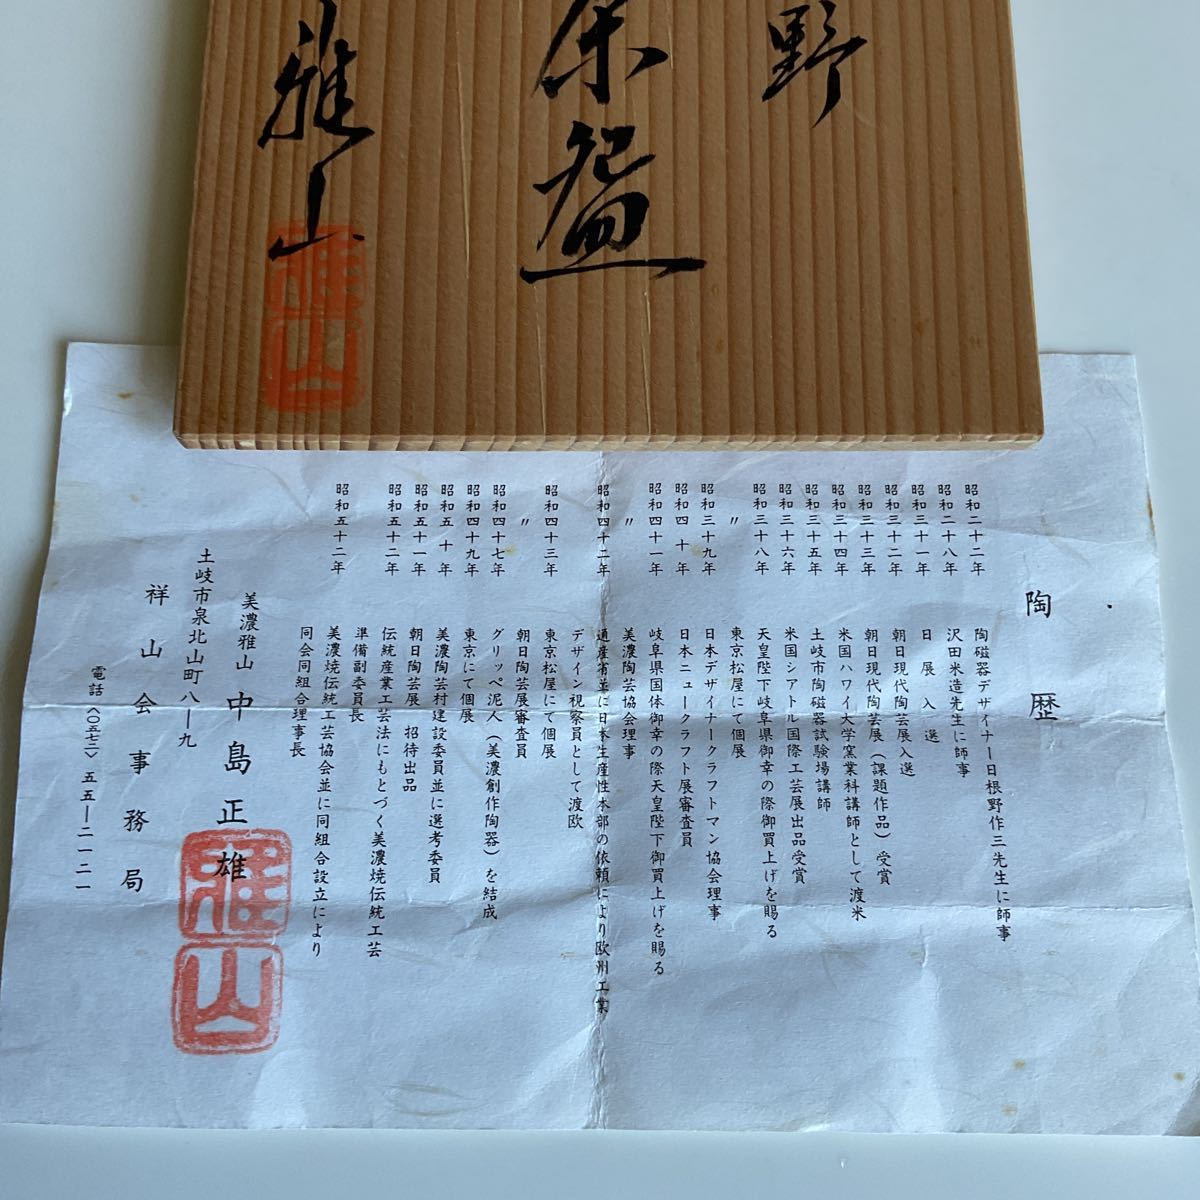 野
茶盌
雅山
雅山
陶歴
昭和二十二年 陶磁器デザイナー日根野作三先生に師事
昭和二十八年 沢田米造先生に師事
昭和三十一年 日展入選
昭和三十二年 朝日現代陶芸展入選
昭和三十三年 朝日現代陶芸展(課題作品)受賞
昭和三十四年 米国ハワイ大学窯業科講師として渡米
昭和三十五年 土岐市陶磁器試験場講師
昭和三十六年 米国シアトル国際工芸展出品受賞
昭和三十八年 天皇陛下岐阜県御幸の際御買上げを賜る
〃 東京松屋にて個展
昭和三十九年 日本デザイナークラフトマン協会理事
昭和四十年 日本ニュークラフト展審査員
昭和四十一年 岐阜県国体御幸の際天皇陛下御買上げを賜る
〃 美濃陶芸協会理事
昭和四十二年 通産省並に日本生産性本部の依頼により欧州工業
デザイン視察員として渡欧
昭和四十三年 東京松屋にて個展
〃 朝日陶芸展審査員
昭和四十七年 グリッペ泥人(美濃創作陶器)を結成
昭和四十九年 東京にて個展
昭和五十年 美濃陶芸村建設委員並に選考委員
昭和五十一年 朝日陶芸展 招待出品
昭和五十二年 伝統産業工芸法にもとづく美濃焼伝統工芸
準備副委員長
昭和五十二年 美濃焼伝統工芸協会並に同組合設立により
同会同組合理事長
美濃雅山 中島正雄
雅山
土岐市泉北山町八―九
祥山会事務局
電話〈〇五七二〉五五―二一二一